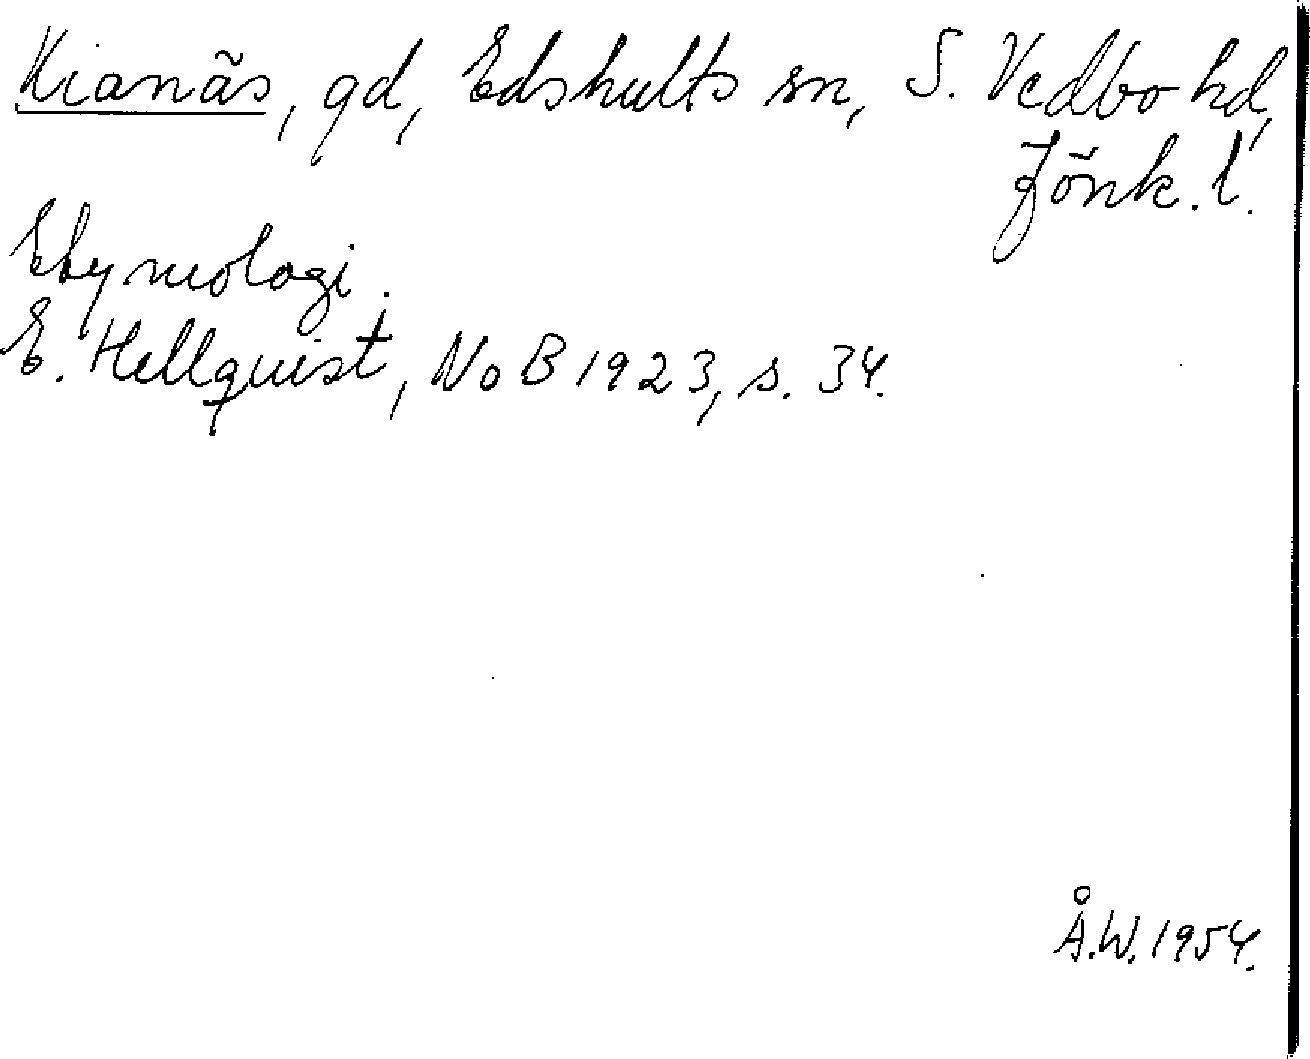 Kianäs, gd, Edshults sn, S. Vedbo hd,
Jönk. l.
Etymologi.
E. Hellquist, NoB 1923, s. 34.
Å.W. 1954.